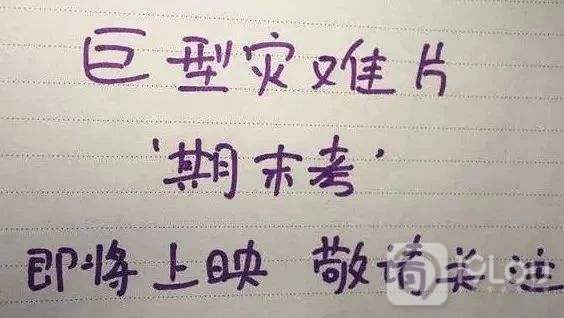 巨型灾难片
'期末考'
即将上映 敬请关注